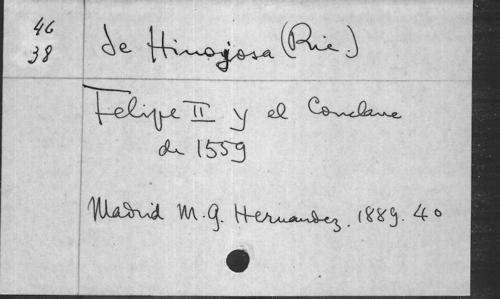 46
38
de Hinojosa (Ric.)
Felipe II y el Conclave
de 1559
Madrid M. G. Hernandez. 1889. 4o